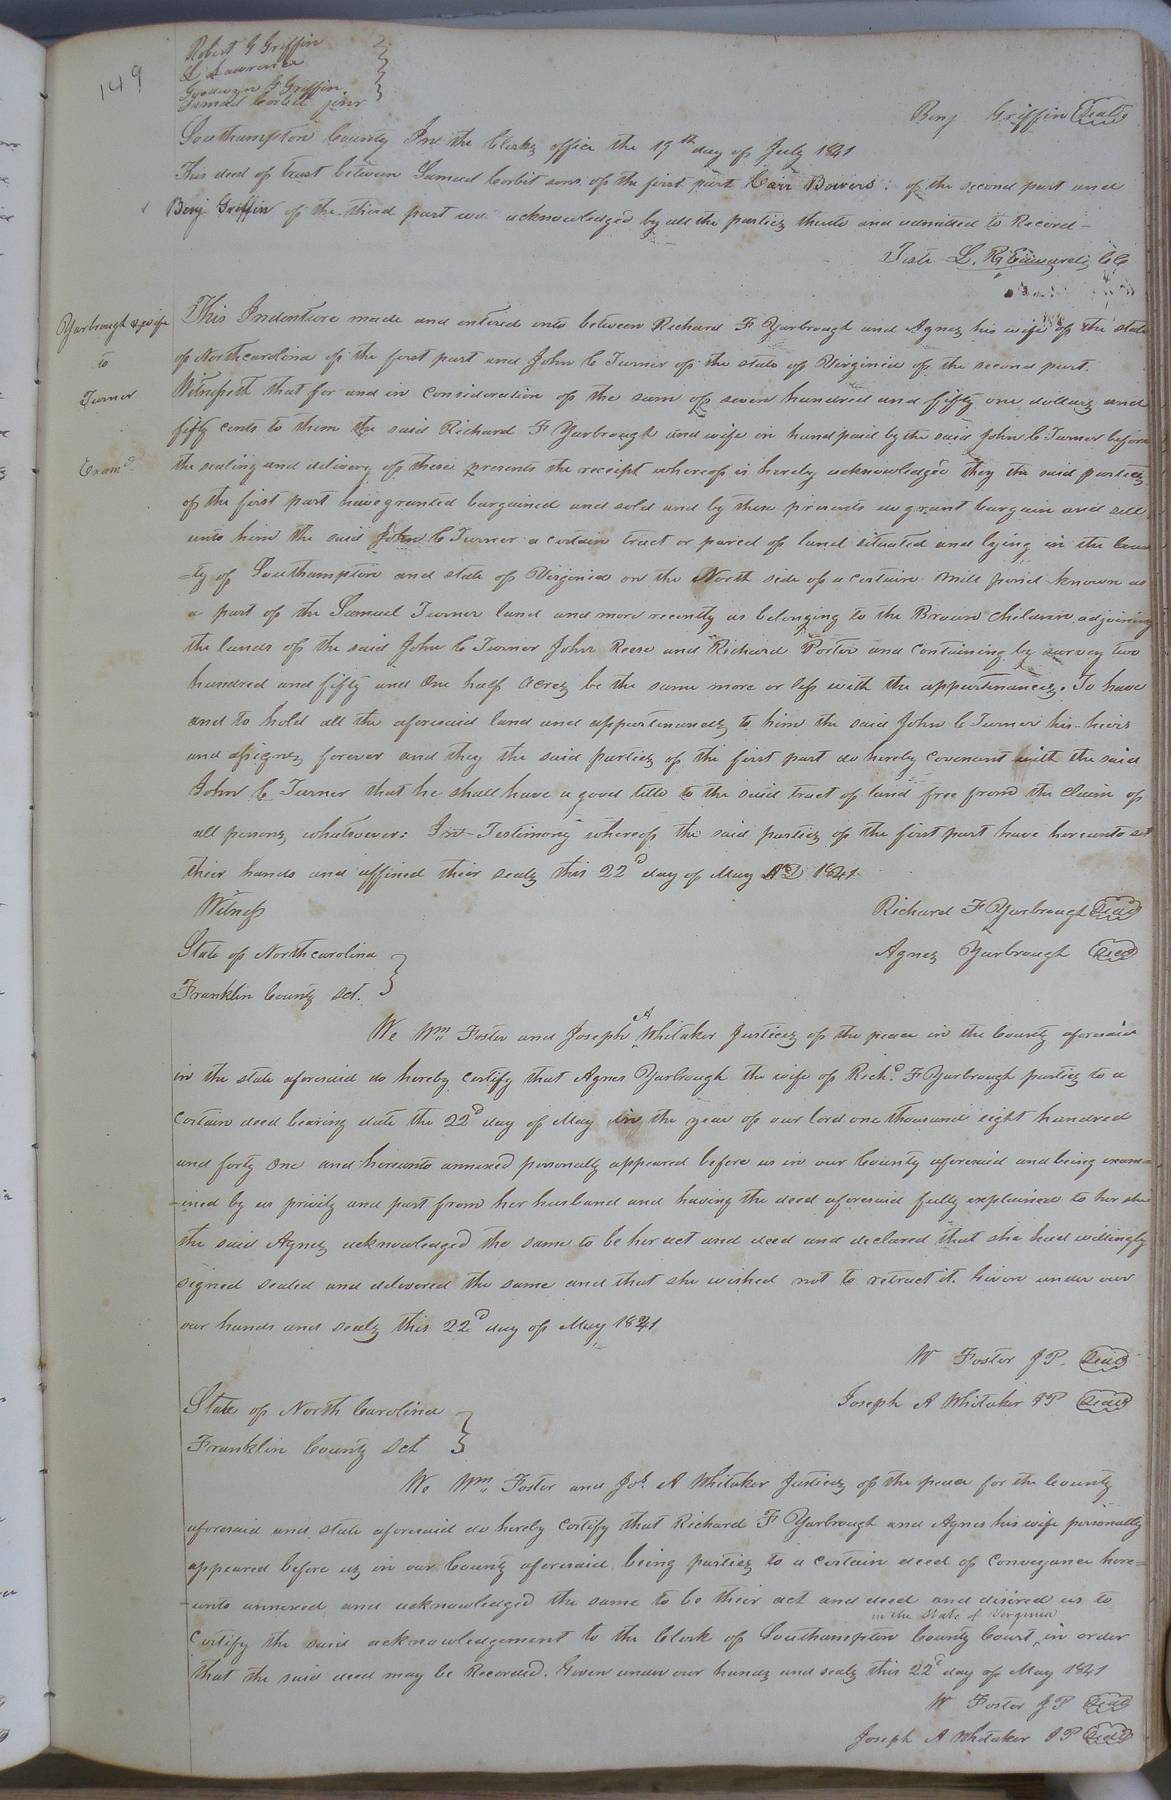 149
Robert G Griffin
L Lawrence
Goodwyn G Griffin
Samuel Corbitt junr
Benj Griffin Seal
Southampton County In the Clerks office the 19th day of July 1841
This deed of trust between Samuel Corbit senr. of the first part Carr Bowers: of the second part and
Benj Griffin of the third part was acknowledged by all the parties thereto and admitted to Record -
Teste L. R. Edwards CC
Yarbrough & wife
to
Turner
Examd
This Indenture made and entered into between Richard F Yarbrough and Agnes his wife of the state
of Northcarolina of the first part and John C Turner of the state of Virginia of the second part.
Witnesseth that for and in Consideration of the sum of seven hundred and fifty one dollars and
fifty cents to them the said Richard F Yarbrough and wife in hand paid by the said John C Turner before
the sealing and delivery of these presents the receipt whereof is hereby acknowledged they the said parties
of the first part have granted bargained and sold and by these presents do grant bargain and sell
unto him the said John C Turner a certain tract or parcel of land situated and lying in the Coun
=ty of Southampton and state of Virginia on the North side of a certain mill pond known as
a part of the Samuel Turner land and more recently as belonging to the Brown Children adjoining
the lands of the said John C Turner John Reese and Richard Porter and containing by survey two
hundred and fifty and One half Acres be the same more or less with the appurtinances. To have
and to hold all the aforesaid land and appurtinances to him the said John C Turner his heirs
and assigns forever and they the said parties of the first part do hereby covenant with the said
John C Turner that he shall have a good title to the said tract of land free from the Claim of
all persons whatsoever: In Testimony whereof the said parties of the first part have hereunto set
their hands and affixed their seals this 22d day of May AD 1841
Witness
Richard F Yarbrough Seal
State of Northcarolina
Agnes Yarbrough Seal
Franklin County Sct.
We Wm Foster and Joseph A Whitaker Justices of the peace in the County aforesaid
in the state aforesaid do hereby certify that Agnes Yarbrough the wife of Richd. F Yarbrough parties to a
certain deed bearing date the 22d day of May in the year of our lord one thousand eight hundred
and forty One and hereunto annexed personally appeared before us in our County aforesaid and being exam=
-ined by us privily and part from her husband and having the deed aforesaid fully explained to her she
the said Agnes acknowledged the same to be her act and deed and declared that she had willingly
signed sealed and delivered the same and that she wished not to retract it. Given under our
our hands and seals this 22d day of May 1841
W Foster JP. Seal
Joseph A Whitaker JP Seal
State of North Carolina
Franklin County Sct
We Wm Foster and Jos. A Whitaker Justices of the peace for the County
aforesaid and state aforesaid do hereby certify that Richard F Yarbrough and Agnes his wife personally
appeared before us in our County aforesaid being parties to a certain deed of Conveyance here=
-unto annexed and acknowledged the same to be their act and deed and disired us to
certify the said acknowledgement to the Clerk of Southampton County Court in the State of Virginia in order
that the said deed may be Recorded. Given under our hands and seals this 22d day of May 1841
W Foster JP Seal
Joseph A Whitaker JP Seal